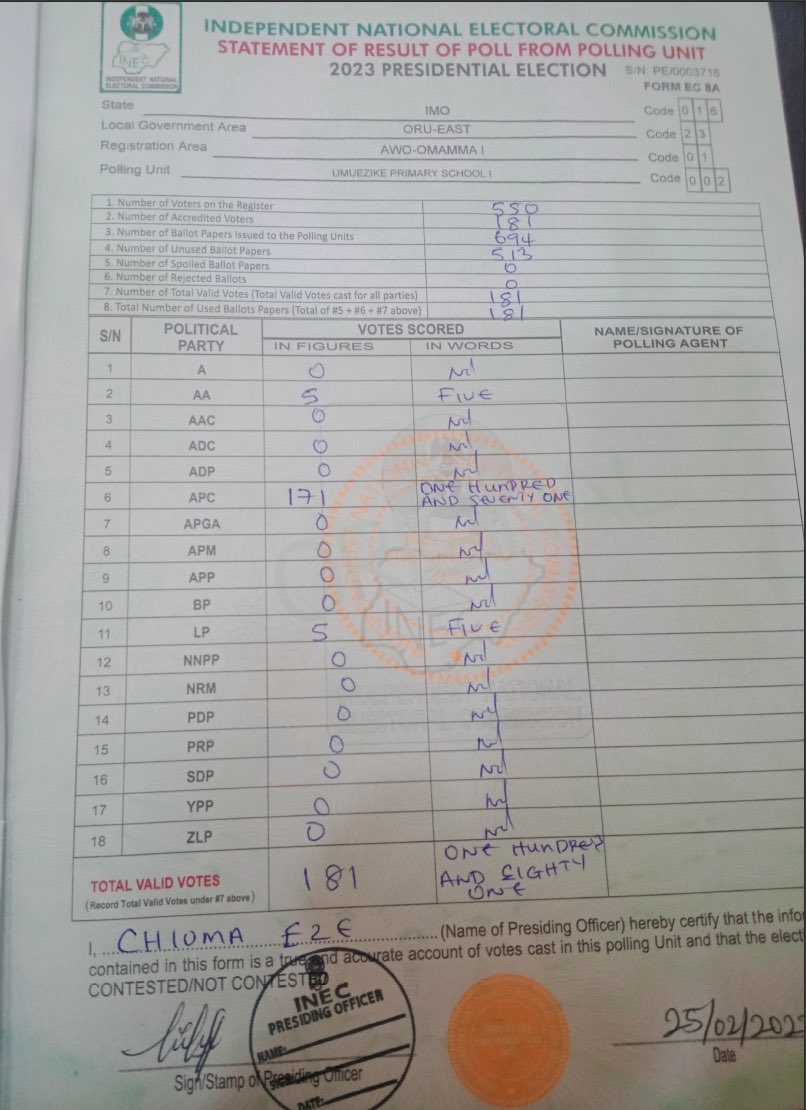 INEC
INDEPENDENT NATIONAL
ELECTORAL COMMISSION
INDEPENDENT NATIONAL ELECTORAL COMMISSION
STATEMENT OF RESULT OF POLL FROM POLLING UNIT
2023 PRESIDENTIAL ELECTION S/N: PE/0003716
FORM EC 8A
State IMO Code 0 1 6
Local Government Area ORU-EAST Code 2 3
Registration Area AWO-OMAMMA I Code 0 1
Polling Unit UMUEZIKE PRIMARY SCHOOL I Code 0 0 2
1. Number of Voters on the Register 550
2. Number of Accredited Voters 181
3. Number of Ballot Papers Issued to the Polling Units 694
4. Number of Unused Ballot Papers 513
5. Number of Spoiled Ballot Papers 0
6. Number of Rejected Ballots 0
7. Number of Total Valid Votes (Total Valid Votes cast for all parties) 181
8. Total Number of Used Ballots Papers (Total of #5 + #6 + #7 above) 181
S/N POLITICAL PARTY VOTES SCORED NAME/SIGNATURE OF POLLING AGENT
IN FIGURES IN WORDS
1 A 0 Nil
2 AA 5 FIVE
3 AAC 0 Nil
4 ADC 0 Nil
5 ADP 0 Nil
6 APC 171 ONE HUNDRED AND SEVENTY ONE
7 APGA 0 Nil
8 APM 0 Nil
9 APP 0 Nil
10 BP 0 Nil
11 LP 5 FIVE
12 NNPP 0 Nil
13 NRM 0 Nil
14 PDP 0 Nil
15 PRP 0 Nil
16 SDP 0 Nil
17 YPP 0 Nil
18 ZLP 0 Nil
TOTAL VALID VOTES 181 ONE HUNDRED AND EIGHTY ONE
(Record Total Valid Votes under #7 above)
I, CHIOMA EZE (Name of Presiding Officer) hereby certify that the info
contained in this form is a true and accurate account of votes cast in this polling Unit and that the elect
CONTESTED/NOT CONTESTED
INEC
PRESIDING OFFICER
NAME:
DATE:
25/02/202
Sign/Stamp of Presiding Officer Date